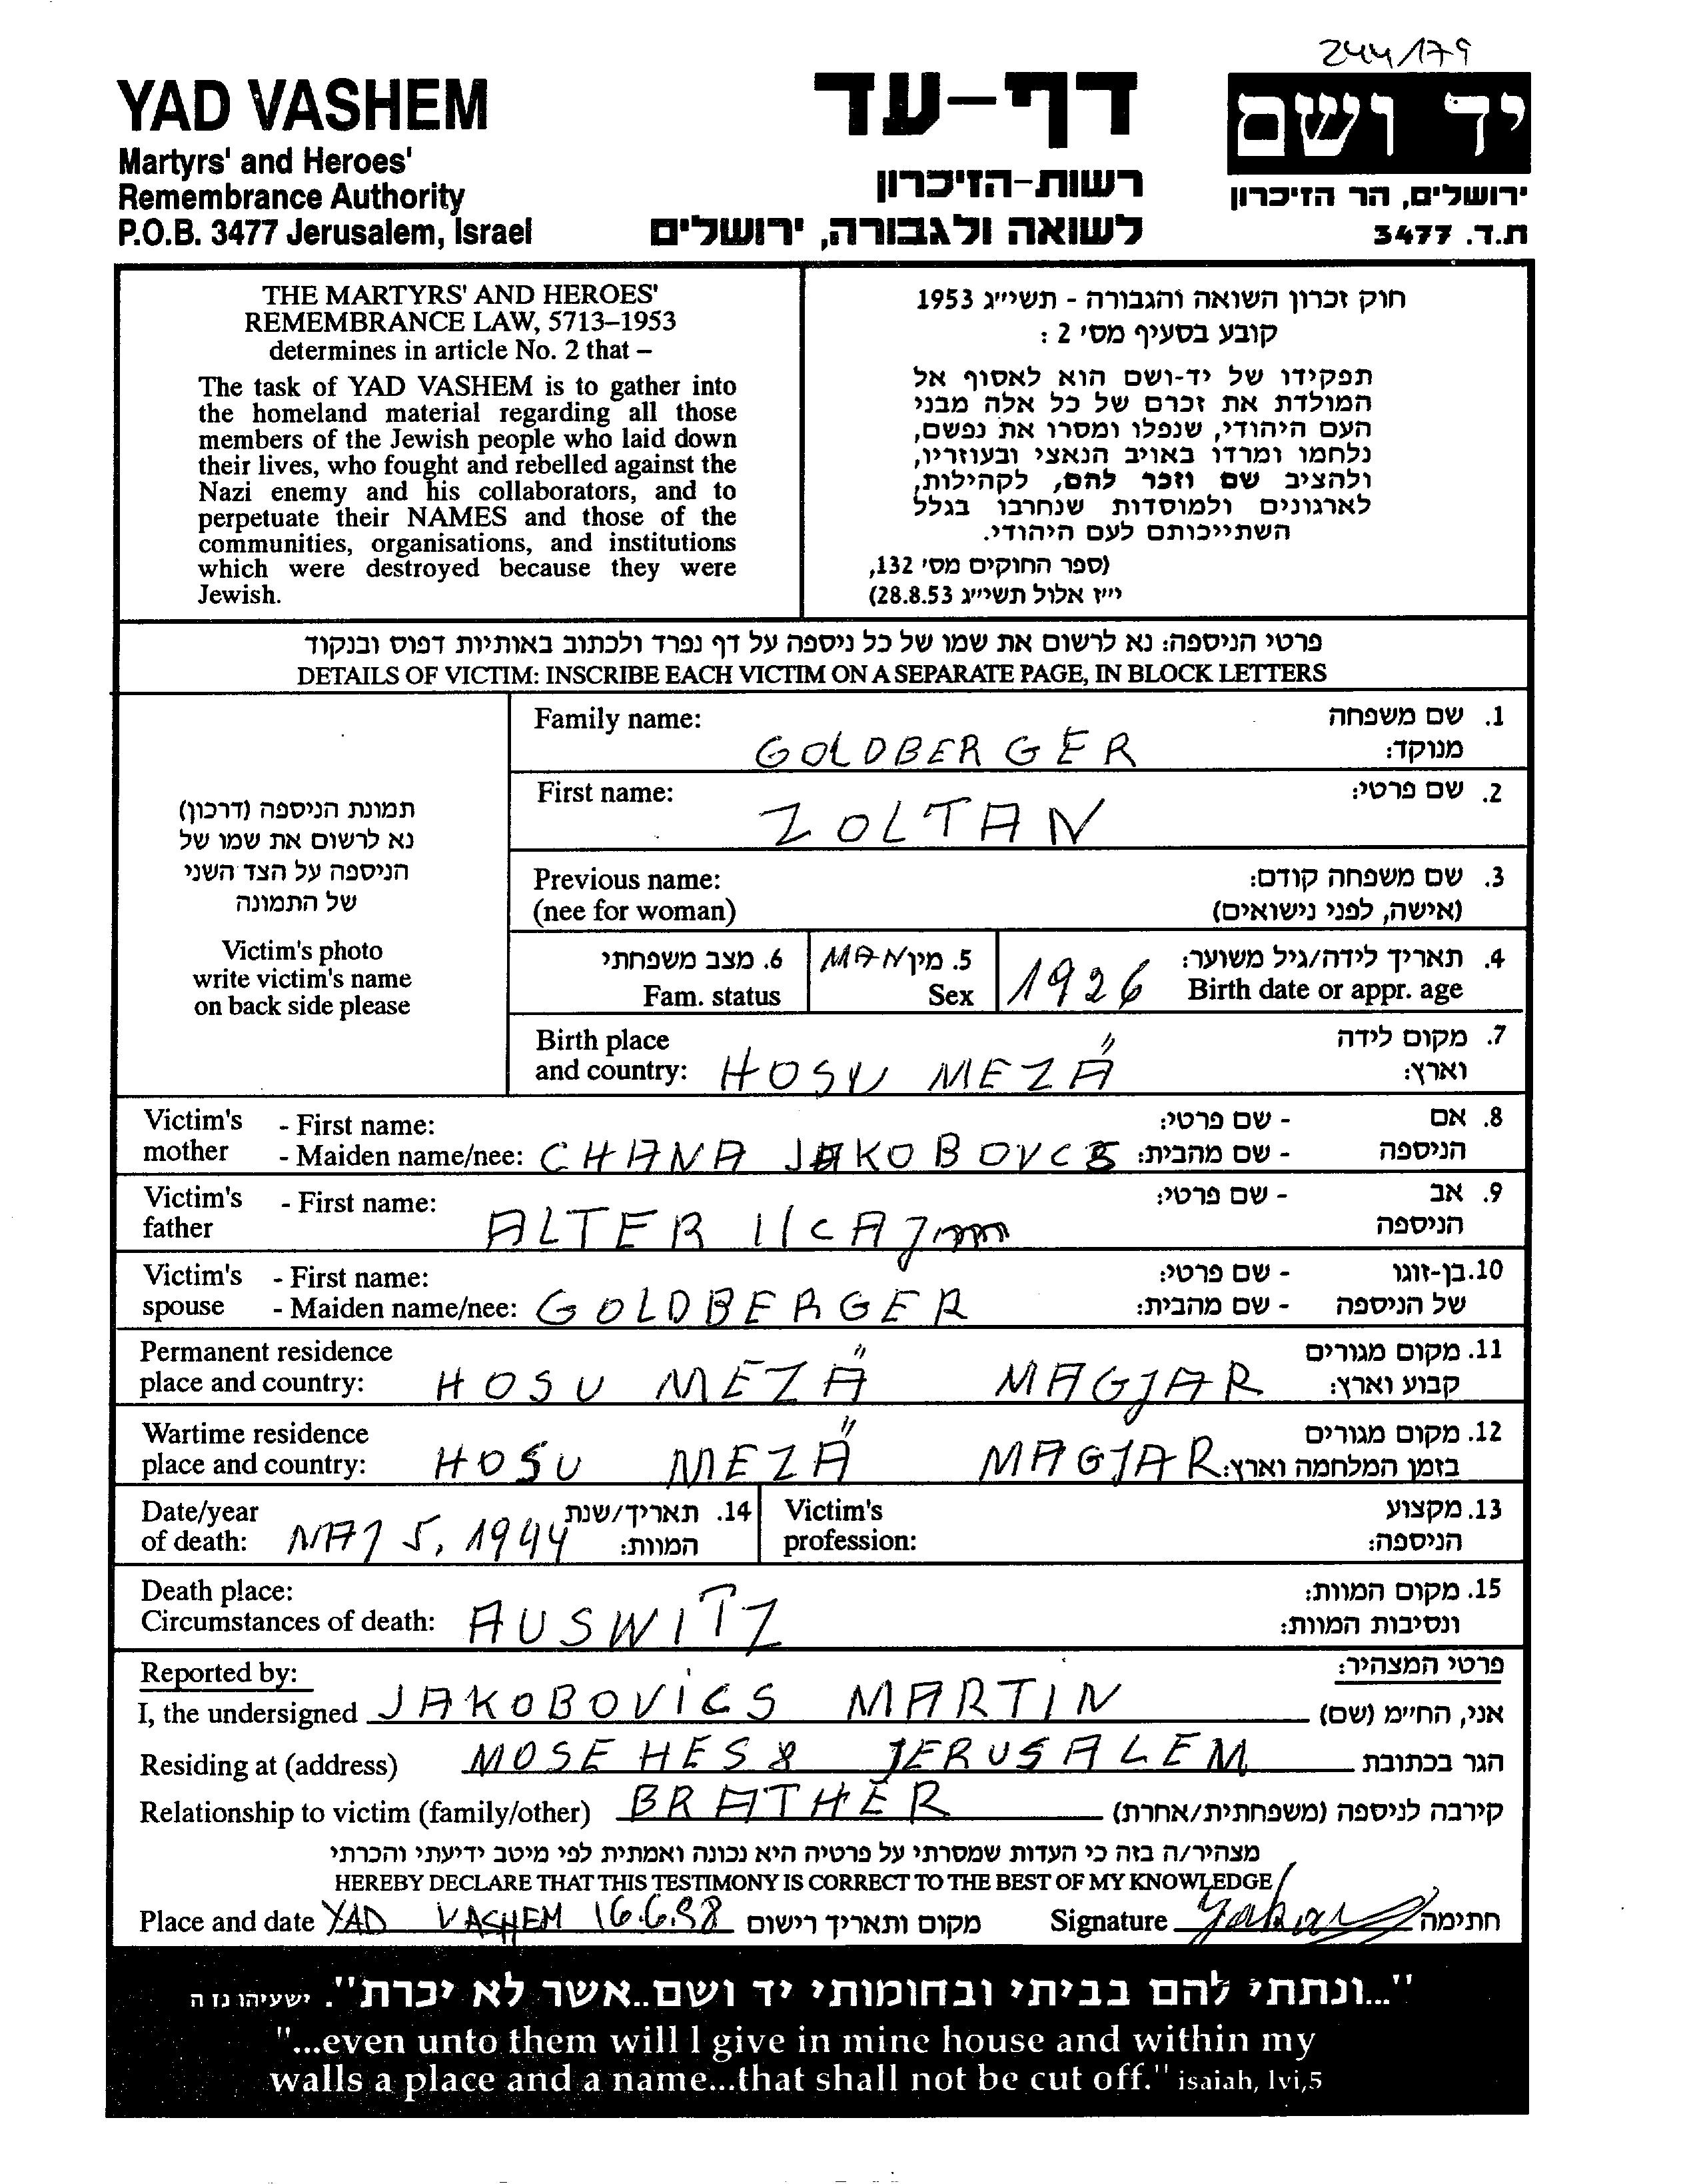 244/179
YAD VASHEM
Martyrs' and Heroes'
Remembrance Authority
P.O.B. 3477 Jerusalem, Israel
דף-עד
רשות-הזיכרון
לשואה ולגבורה, ירושלים
יד ושם
ירושלים, הר הזיכרון
ת.ד. 3477
THE MARTYRS' AND HEROES'
REMEMBRANCE LAW, 5713–1953
determines in article No. 2 that –
The task of YAD VASHEM is to gather into
the homeland material regarding all those
members of the Jewish people who laid down
their lives, who fought and rebelled against the
Nazi enemy and his collaborators, and to
perpetuate their NAMES and those of the
communities, organisations, and institutions
which were destroyed because they were
Jewish.
חוק זכרון השואה והגבורה - תשי״ג 1953
קובע בסעיף מס׳ 2 :
תפקידו של יד-ושם הוא לאסוף אל
המולדת את זכרם של כל אלה מבני
העם היהודי, שנפלו ומסרו את נפשם,
נלחמו ומרדו באויב הנאצי ובעוזריו,
ולהציב שם וזכר להם, לקהילות,
לארגונים ולמוסדות שנחרבו בגלל
השתייכותם לעם היהודי.
(ספר החוקים מס׳ 132,
י״ז אלול תשי״ג 28.8.53)
פרטי הניספה: נא לרשום את שמו של כל ניספה על דף נפרד ולכתוב באותיות דפוס ובנקוד
DETAILS OF VICTIM: INSCRIBE EACH VICTIM ON A SEPARATE PAGE, IN BLOCK LETTERS
תמונת הניספה (דרכון)
נא לרשום את שמו של
הניספה על הצד השני
של התמונה
Victim's photo
write victim's name
on back side please
Family name: GOLDBERGER 1. שם משפחה
מנוקד:
First name: ZOLTAN 2. שם פרטי:
Previous name: 3. שם משפחה קודם:
(nee for woman) (אישה, לפני נישואים)
6. מצב משפחתי MAN 5. מין 1926 4. תאריך לידה/גיל משוער:
Fam. status Sex Birth date or appr. age
Birth place 7. מקום לידה
and country: HOSU MEZA̋ וארץ:
Victim's - First name: - שם פרטי: 8. אם
mother - Maiden name/nee: CHANA JAKOBOVCS - שם מהבית: הניספה
Victim's - First name: - שם פרטי: 9. אב
father ALTER הניספה
Victim's - First name: - שם פרטי: 10. בן-זוגו
spouse - Maiden name/nee: GOLDBERGER - שם מהבית: של הניספה
Permanent residence 11. מקום מגורים
place and country: HOSU MEZA̋ MAGJAR קבוע וארץ:
Wartime residence 12. מקום מגורים
place and country: HOSU MEZA̋ MAGJAR בזמן המלחמה וארץ:
Date/year 14. תאריך/שנת Victim's 13. מקצוע
of death: MAJ 5, 1944 המוות: profession: הניספה:
Death place: 15. מקום המוות:
Circumstances of death: AUSWITZ ונסיבות המוות:
Reported by: פרטי המצהיר:
I, the undersigned JAKOBOVICS MARTIN אני, החי״מ (שם)
Residing at (address) MOSE HES 8 JERUSALEM הגר בכתובת
Relationship to victim (family/other) BRATHER קירבה לניספה (משפחתית/אחרת)
מצהיר/ה בזה כי העדות שמסרתי על פרטיה היא נכונה ואמתית לפי מיטב ידיעתי והכרתי
HEREBY DECLARE THAT THIS TESTIMONY IS CORRECT TO THE BEST OF MY KNOWLEDGE
Place and date YAD VASHEM 16.6.98 מקום ותאריך רישום Signature חתימה
"...ונתתי להם בביתי ובחומותי יד ושם..אשר לא יכרת". ישעיהו נו ה
"...even unto them will I give in mine house and within my
walls a place and a name...that shall not be cut off." isaiah, lvi,5